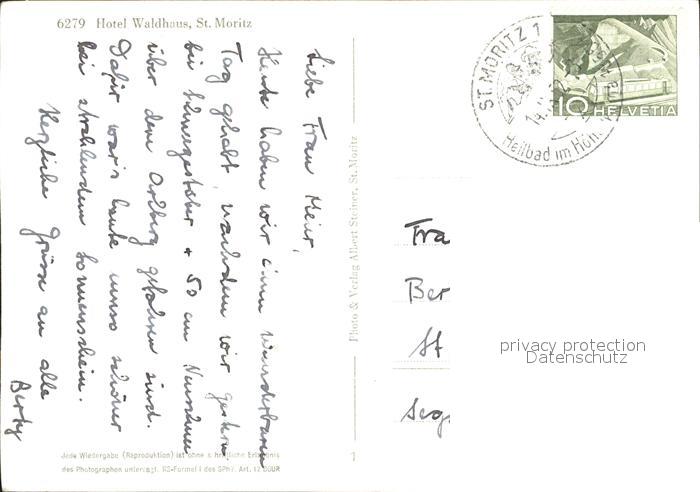 6279 Hotel Waldhaus, St. Moritz
Liebe Frau Meier,
Heute haben wir einen wunderbaren
Tag gehabt, nachdem wir gestern
bei Schneegestöber + 50 cm Neuschnee
über den Arlberg gefahren sind.
Dafür war's heute umso schöner
bei strahlendem Sonnenschein.
Herzliche Grüsse an alle
Berty
Jede Wiedergabe (Reproduktion) ist ohne schriftliche Erlaubnis
des Photographen untersagt. RS-Formel I des SPhV. Art. 12
Photo & Verlag Albert Steiner, St. Moritz
ST. MORITZ 1
Heilbad im
10 HELVETIA
Fra
Ber
St
Seg
privacy protection
Datenschutz